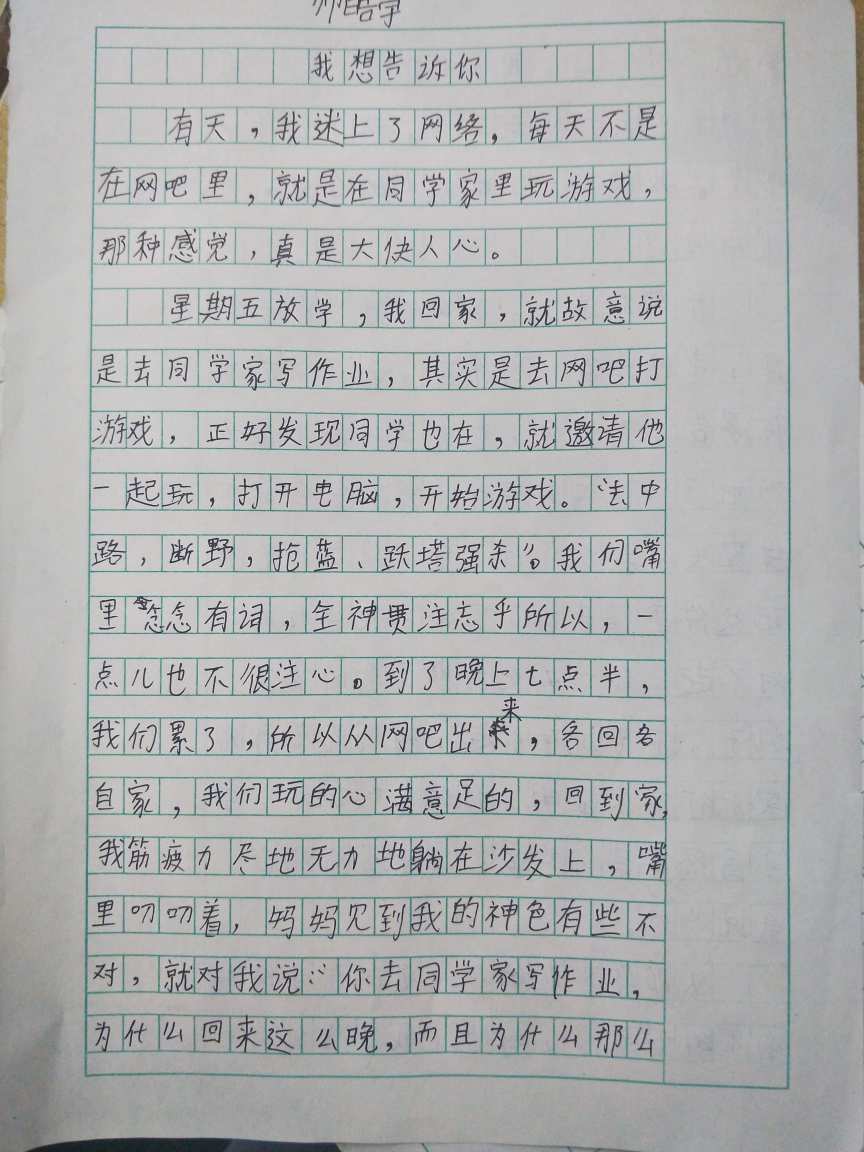 我想告诉你
有天，我迷上了网络，每天不是
在网吧里，就是在同学家里玩游戏，
那种感觉，真是大快人心。
星期五放学，我回家，就故意说
是去同学家写作业，其实是去网吧打
游戏，正好发现同学也在，就邀请他
一起玩，打开电脑，开始游戏。“法中
路，断野，抢蓝、跃塔强杀”。我们嘴
里念念有词，全神贯注忘乎所以，一
点儿也不很注心。到了晚上七点半，
我们累了，所以从网吧出来，各回各
自家，我们玩的心满意足的，回到家，
我筋疲力尽地无力地躺在沙发上，嘴
里叨叨着，妈妈见到我的神色有些不
对，就对我说：“你去同学家写作业，
为什么回来这么晚，而且为什么那么